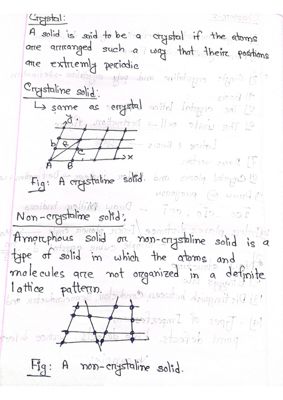 Crystal:
A solid is said to be a crystal if the atoms
are arranged such a way that their positions
are extremly periodic
Crystaline solid:
↳ same as crystal
y
b
e
c
x
A B
Fig: A crystaline solid.
Non-crystaline solid:
Amorphous solid or non-crystaline solid is a
type of solid in which the atoms and
molecules are not organized in a definite
lattice pattern.
Fig: A non-crystaline solid.